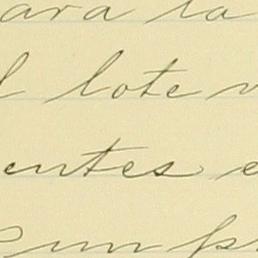 ara la
l lote v
entes e
un p